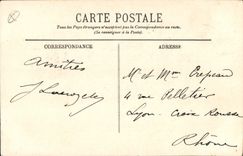 CARTE POSTALE
Tous les Pays étrangers n'acceptent pas la Correspondance au recto.
(Se renseigner à la Poste).
CORRESPONDANCE
ADRESSE
Amitiés
M. et Mme Crepeau
4 rue Pelletier
Lyon - Croix Rousse
Rhône